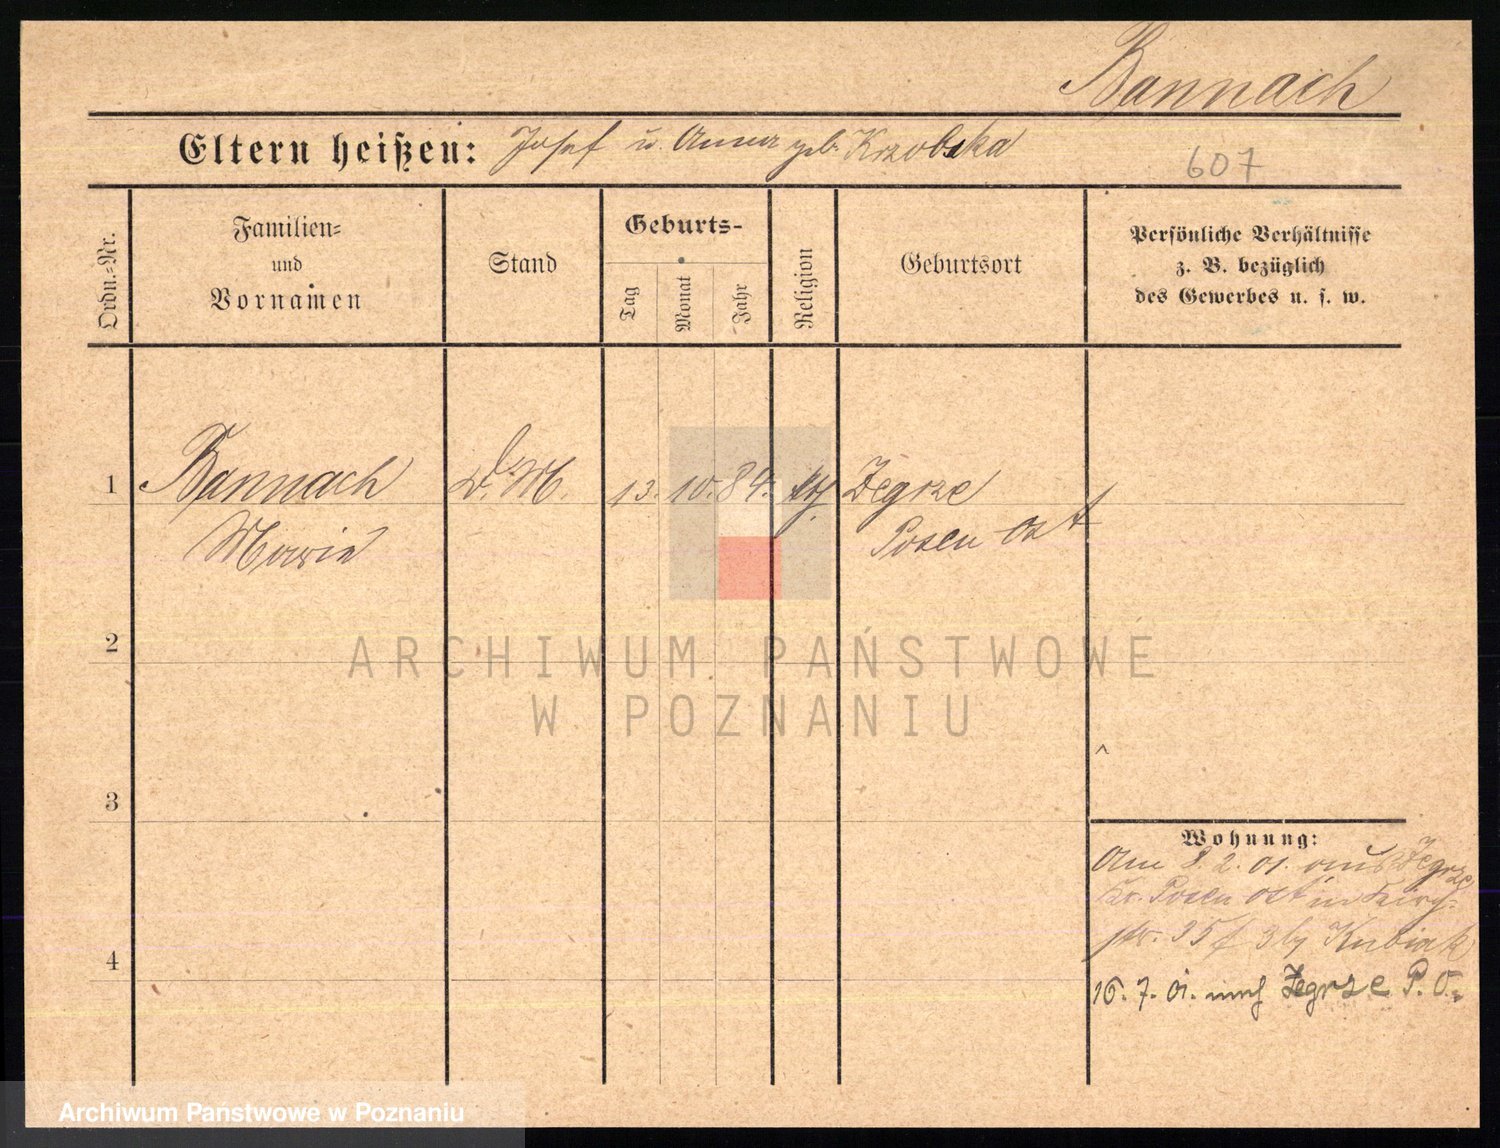 Bannach
Eltern heißen: Josef u. Anna geb. Krzobska
607
Ordn.-Nr.
Familien-
und
Vornamen
Stand
Geburts-
Tag
Monat
Jahr
Religion
Geburtsort
Persönliche Verhältnisse
z. B. bezüglich
des Gewerbes u. s. w.
1 Bannach D. M. 13. 10. 84. Zegrze
Marie Posen Ost
2
ARCHIWUM PAŃSTWOWE
W POZNANIU
3
Wohnung:
Am 8. 2. 01. aus Zegrze
Kr. Posen Ost in
str. Kubiak
4
16. 7. 01. nach Zegrze P. O.
Archiwum Państwowe w Poznaniu